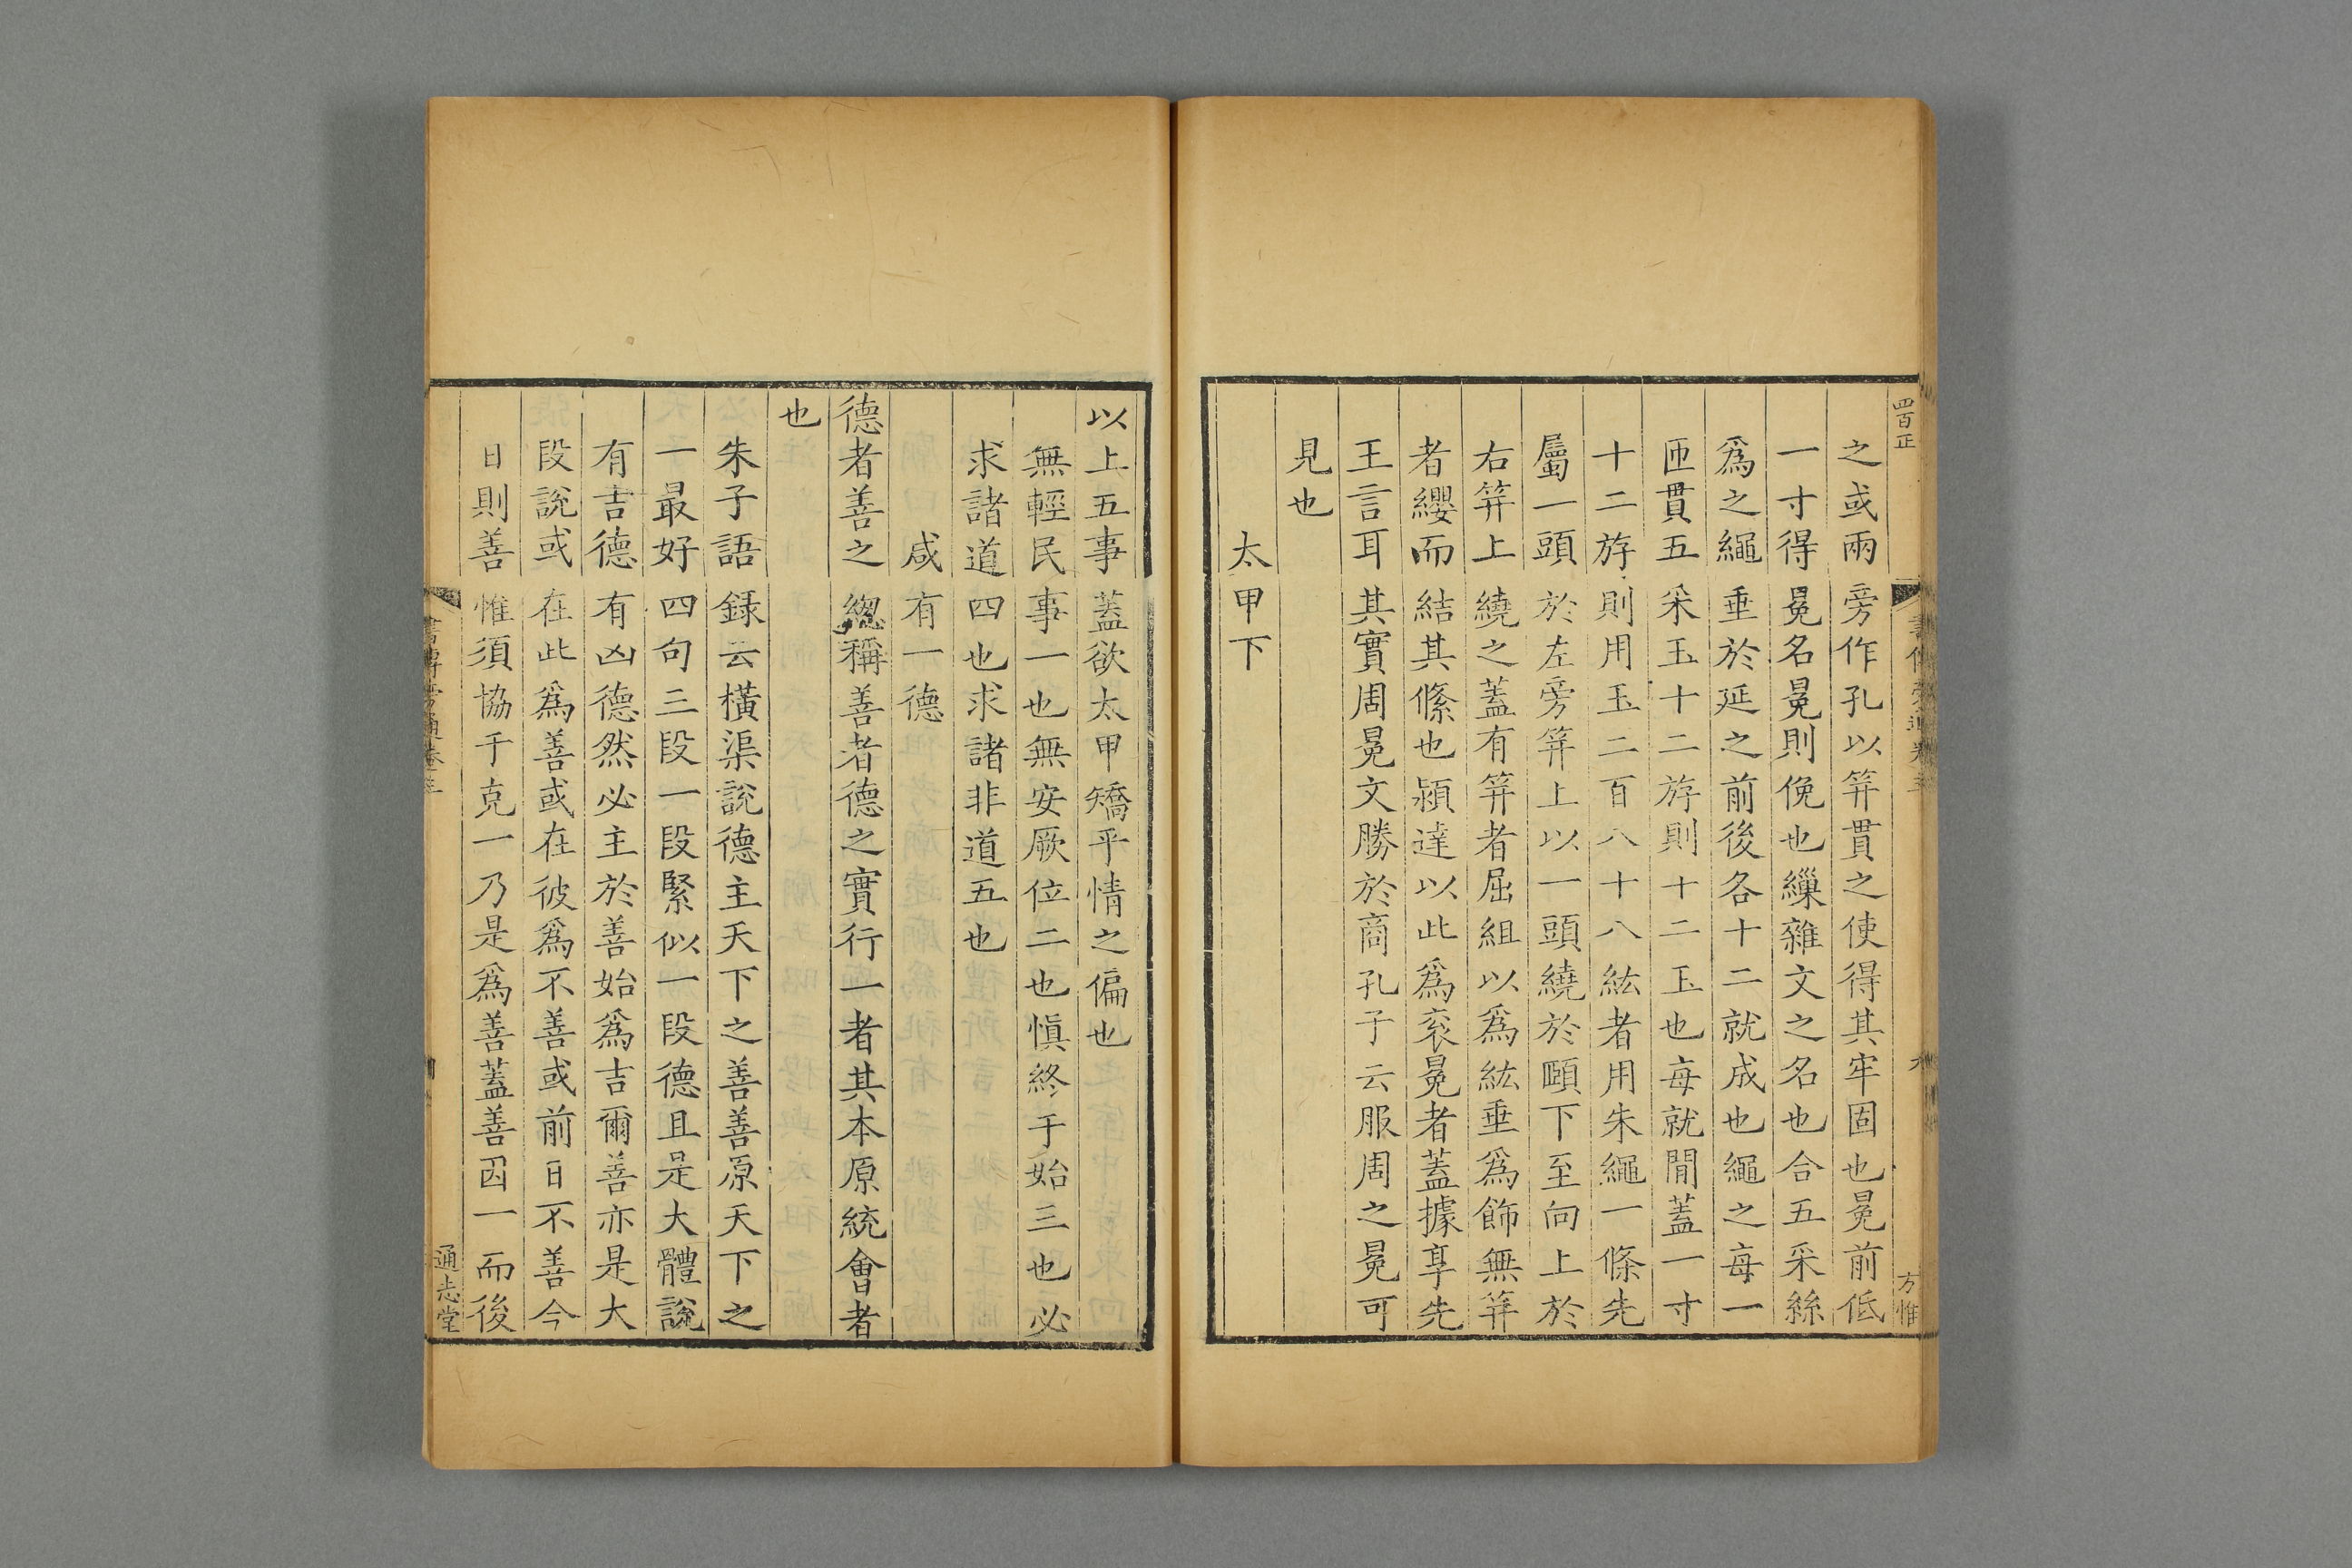 四百正
之或兩旁作孔以笄貫之使得其牢固也冕前低
一寸得冕名冕則俛也繅雜文之名也合五采絲
爲之繩垂於延之前後各十二就成也繩之每一
匝貫五采玉十二斿則十二玉也每就閒蓋一寸
十二斿則用玉二百八十八紘者用朱繩一條先
屬一頭於左旁笄上以一頭繞於頤下至向上於
右笄上繞之蓋有笄者屈組以爲紘垂爲飾無笄
者纓而結其絛也潁達以此爲衮冕者蓋據享先
王言耳其實周冕文勝於商孔子云服周之冕可
見也
太甲下
方惟
以上五事蓋欲太甲矯乎情之偏也
無輕民事一也無安厥位二也愼終于始三也必
求諸道四也求諸非道五也
咸有一德
德者善之緫稱善者德之實行一者其本原統會者
也
朱子語録云橫渠說德主天下之善善原天下之
一最好四句三段一段緊似一段德且是大體說
有吉德有凶德然必主於善始爲吉爾善亦是大
段說或在此爲善或在彼爲不善或前日不善今
日則善惟須協于克一乃是爲善蓋善因一而後
書傳旁通卷三
通志堂